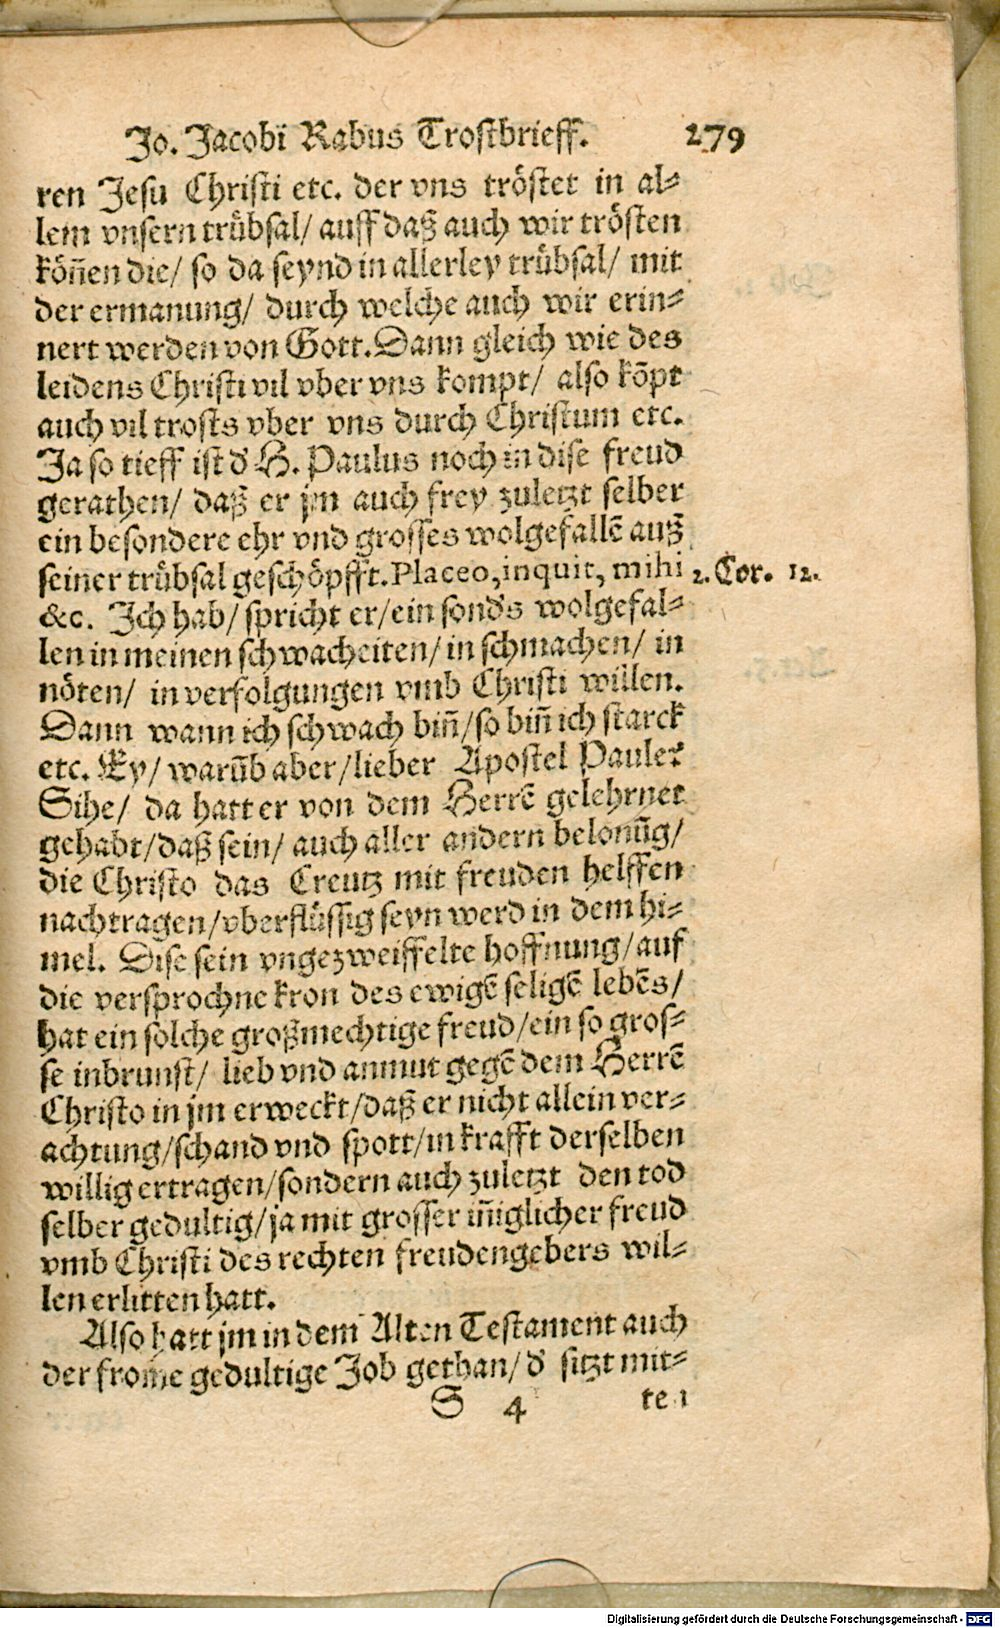 Jo. Jacobi Rabus Trostbrieff. 279
ren Jesu Christi etc. der vns tröstet in al-
lem vnsern trübsal/ auff daß auch wir trösten
köñen die/ so da seynd in allerley trübsal/ mit
der ermanung/ durch welche auch wir erin-
nert werden von Gott. Dann gleich wie des
leidens Christi vil vber vns kompt/ also kõpt
auch vil trosts vber vns durch Christum etc.
Ja so tieff ist d' H. Paulus noch in dise freud
gerathen/ daß er jm auch frey zuletzt selber
ein besondere ehr vnd grosses wolgefallẽ auß
seiner trübsal geschöpfft. Placeo, inquit, mihi
2. Cor. 12.
&c. Ich hab/ spricht er/ ein sond's wolgefal-
len in meinen schwacheiten/ in schmachen/ in
nöten/ in verfolgungen vmb Christi willen.
Dann wann ich schwach biñ/ so biñ ich starck
etc. Ey/ warũb aber/ lieber Apostel Paule?
Sihe/ da hatt er von dem Herrẽ gelehrnet
gehabt/ daß sein/ auch aller andern belonũg/
die Christo das Creutz mit freuden helffen
nachtragen/ vberflüssig seyn werd in dem hi-
mel. Dise sein vngezweiffelte hoffnung/ auf
die versprochne kron des ewigẽ seligẽ lebẽs/
hat ein solche großmechtige freud/ ein so gros-
se inbrunst/ lieb vnd anmut gegẽ dem Herrẽ
Christo in jm erweckt/ daß er nicht allein ver-
achtung/ schand vnd spott/ in krafft derselben
willig ertragen/ sondern auch zuletzt den tod
selber gedultig/ ja mit grosser iñiglicher freud
vmb Christi des rechten freudengebers wil-
len erlitten hatt.
Also hatt jm in dem Alten Testament auch
der from̃e gedultige Job gethan/ d' sitzt mit-
S 4 te
Digitalisierung gefördert durch die Deutsche Forschungsgemeinschaft - DFG